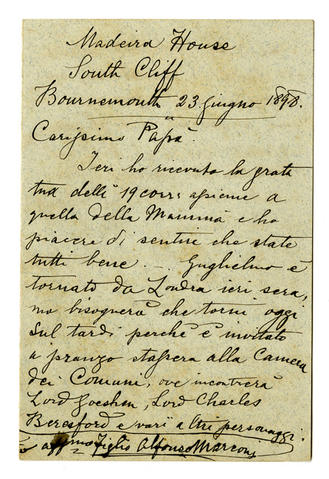 Madeira House
South Cliff
Bournemouth 23 giugno 1898.
Carissimo Papà.
Ieri ho ricevuto la grata
tua delli 19 corr: assieme a
quella della Mamma e ho
piacere di sentire che state
tutti bene Guglielmo è
tornato da Londra ieri sera,
ma bisognerà che torni oggi
sul tardi perchè è invitato
a pranzo stassera alla Camera
dei Comuni, ove incontrerà
Lord Goschen, Lord Charles
Beresford e varii altri personaggi.
affmo figlio Alfonso Marconi